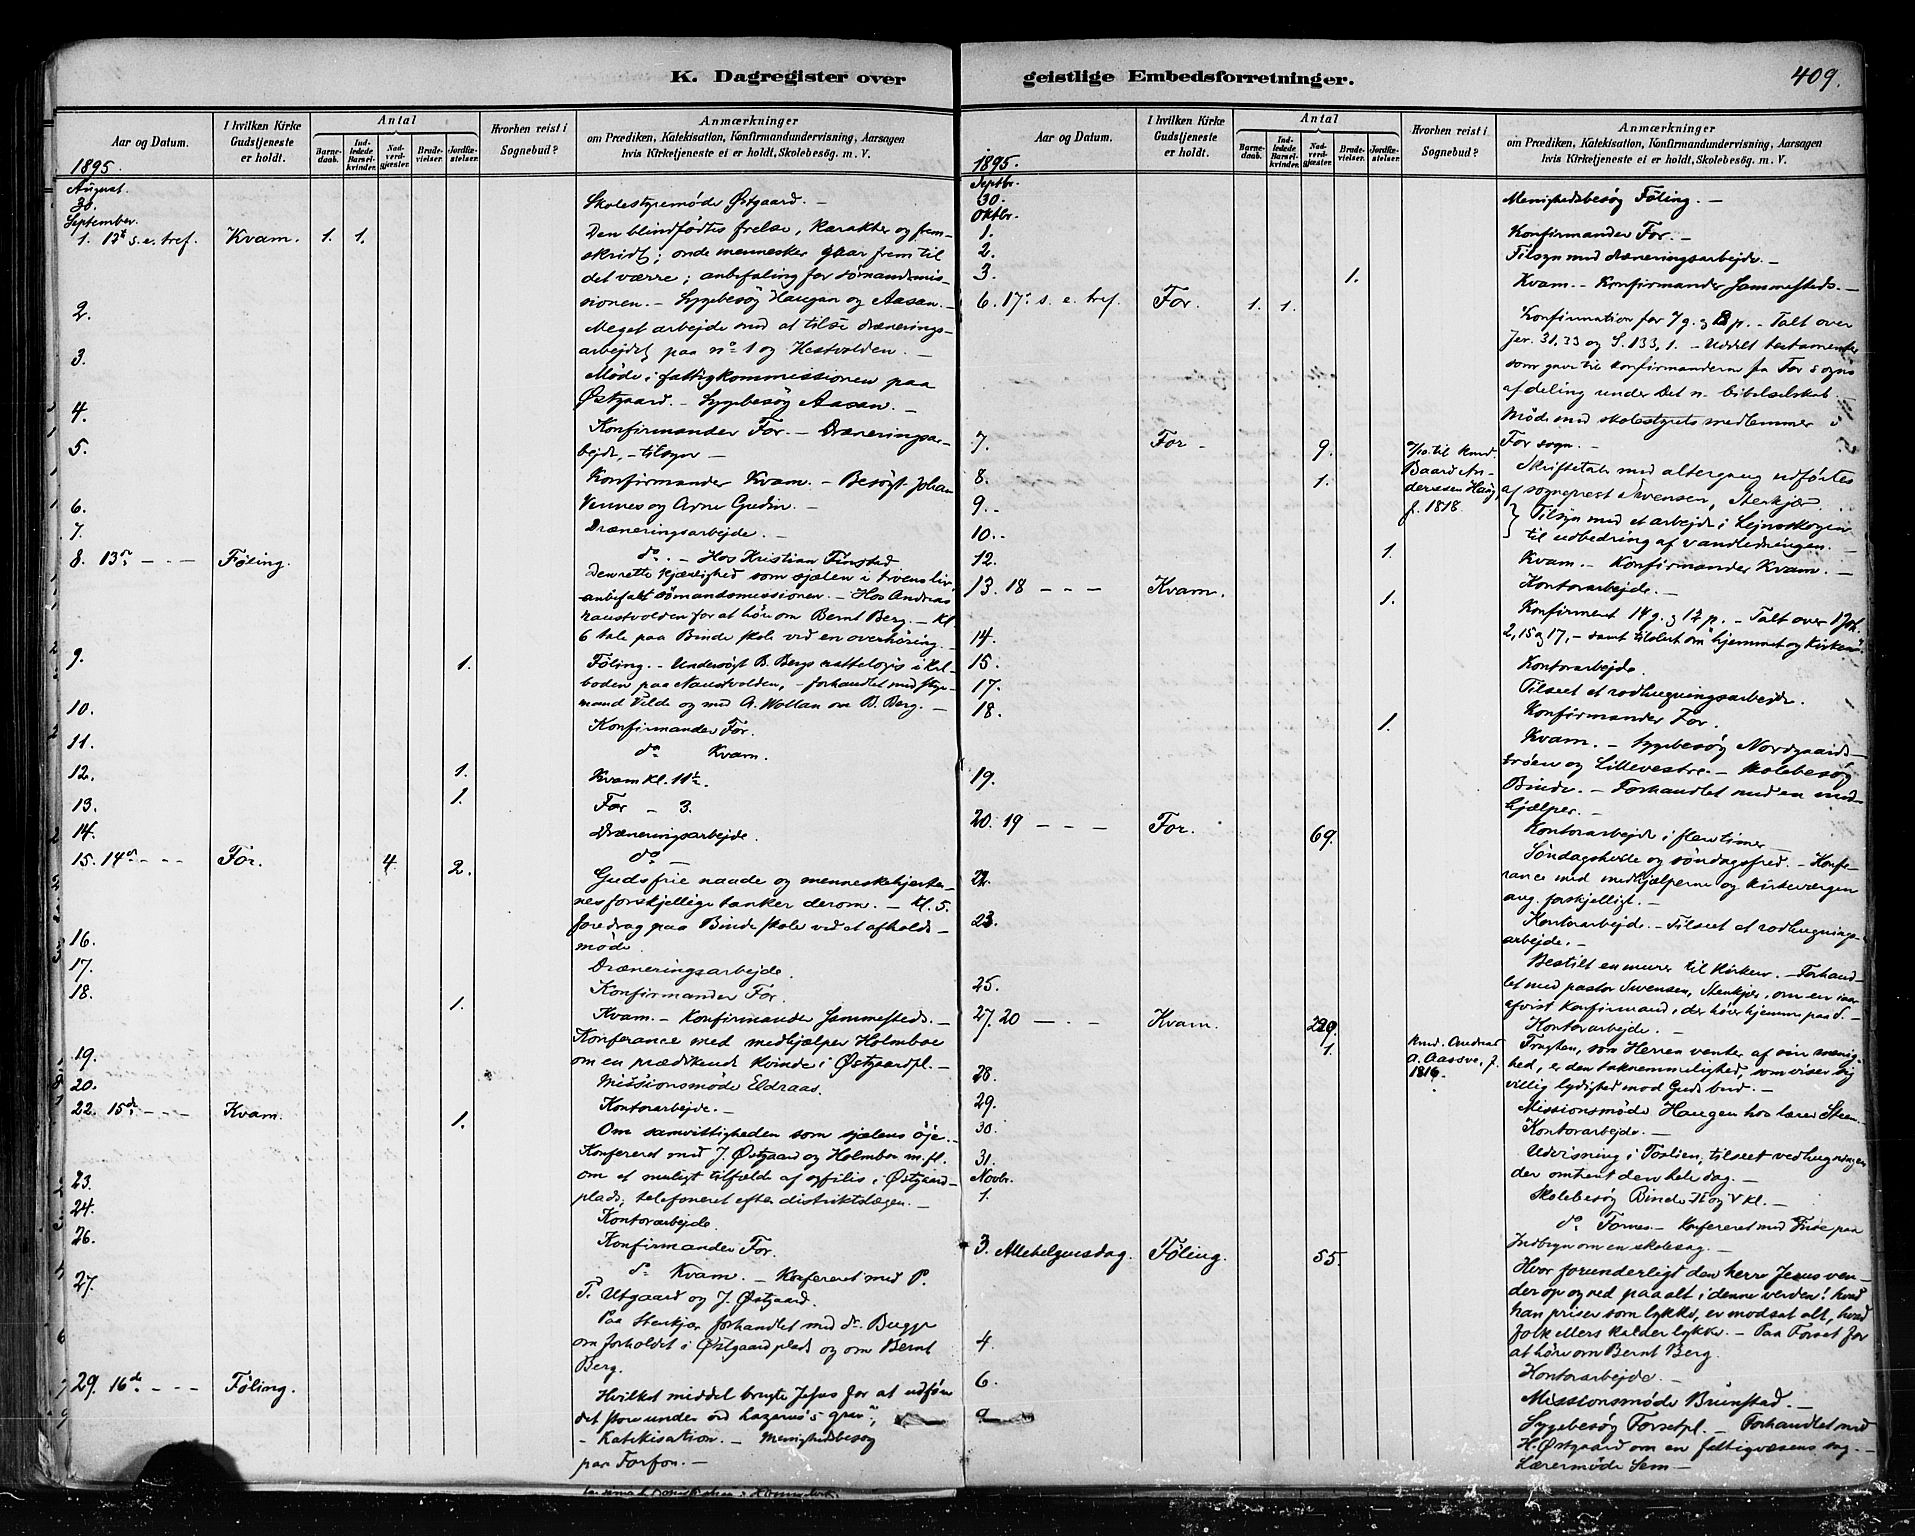 K. Dagregister over
Aar og Datum.
I hvilken Kirke
Gudstjeneste
er holdt.
Antal
Barne-
daab.
Ind-
ledede
Barsel-
kvinder.
Nad-
verd-
gjæster.
Brude-
vielser.
Jordfæ-
stelser.
Hvorhen reist i
Sognebud?
Anmærkninger
om Prædiken, Katekisation, Konfirmandundervisning, Aarsagen
hvis Kirketjeneste ei er holdt, Skolebesøg. m. V.
1895.
August.
30. Skolestyremøde Østgaard. —
September.
1. 12te s. e. tref. Kvam. 1. 1. Den blindfødtes frelse, karakter og frem-
skridt; onde mennesker gaar frem til
det værre; anbefaling for sømandsmis-
sionen. — Sygebesøg Haugan og Aasan. —
2. Meget arbejde med at tilse drænerings-
arbejdet paa no 1 og Hestvolden. —
3. Møde i fattigkommissionen paa
Østgaard. — Sygebesøg Aasan. —
4. Konfirmander For. — Dræneringsar-
bejde, — tilsyn —
5. Konfirmander Kvam. — Besøgt Johan
Vennes og Arne Gudin. —
6. Dræneringsarbejde. —
7. do. — Hos Kristian Finstad.
8. 13de — — — Føling. Den rette kjærlighed som sjælen i troens liv
anbefalt sømandsmissionen. — Hos Andreas
Naustvolden for at høre om Bernt Berg. — Kl.
6 tale paa Binde skole ved en overhøring. —
9. 1. Føling. — Undersøgt B. Bergs natte logis i kul-
boden paa Naustvolden, — forhandlet med styr-
mand Vilde og med A. Wollan om B. Berg. —
10. Konfirmander For.
11. do Kvam.
12. 1. Kvam kl. 11½.
13. 1. For — 3.
14. Dræneringsarbejde.
15. 14de — — — For. 4. 2. do —
Guds frie naade og menneskehjerter-
nes forskjellige tanker derom. — Kl. 5.
foredrag paa Binde skole ved et afholds-
møde.
16. Dræneringsarbejde.
17. Konfirmander For.
18. 1. Kvam. — Konfirmander sammesteds. —
Konferance med medhjælper Holmboe
om en prædikende kvinde i Østgaardpl. —
19. Missionsmøde Eldraas.
20. Kontorarbejde. —
22. 15de — — — Kvam. 1. Om samvittigheden som sjælens øje. —
Konfereret med J. Østgaard og Holmboe m. fl.
om et muligt tilfælde af syfilis i Østgaard-
plads; telefoneret efter distriktslægen. —
23. Kontorarbejde.
24. Konfirmander For.
26. do Kvam. — Konfereret med P.
P. Utgaard og J. Østgaard.
27. Paa Stenkjær forhandlet med dr. Bugge
om forholdet i Østgaardplads og om Bernt
Berg.
29. 16de — — — Føling. Hvilket middel brugte Jesus for at udføre
det store under ved Lazarus's grav",
— Katekisation. — Menighedsbesøg
paa Forfon. —
geistlige Embedsforretninger.
409.
Aar og Datum.
I hvilken Kirke
Gudstjeneste
er holdt.
Antal
Barne-
daab.
Ind-
ledede
Barsel-
kvinder.
Nad-
verd-
gjæster.
Brude-
vielser.
Jordfæ-
stelser.
Hvorhen reist i
Sognebud?
Anmærkninger
om Prædiken, Katekisation, Konfirmandundervisning, Aarsagen
hvis Kirketjeneste ei er holdt, Skolebesøg. m. V.
1895.
Septbr.
30. Menighedsbesøg Føling. —
Oktbr.
1. Konfirmander For. —
2. Tilsyn med dræneringsarbejde. —
3. 1. Kvam. — Konfirmander sammesteds. —
6. 17de s. e. tref. For. 1. 1. Konfirmation for 7 g. og 8 p. — Talt over
Jer. 31, 33 og S. 133, 1. — Uddelt testamenter
som gave til konfirmanderne fra For sogns
afdeling under Det n. bibelselskab
Møde med skolestyrets medlemmer i
For sogn. —
7. For — 9. 7/10 til Kmd.
Baard An-
derssen Haug,
f. 1818.
Skriftetale med altergang udførtes
af sogneprest Svensen, Stenkjær.
8. 1.
9. — Tilsyn med et arbejde i Lejnsskogen
10. — til udbedring af vandledningen. —
12. 1. Kvam. — Konfirmander Kvam. —
Kontorarbejde. —
13. 18 — — — Kvam. 1. Konfirmeret 14 g. og 12 p. — Talt over 1 Joh.
2, 15 og 17, — samt tilslut om "hjemmet og kirken".
14. Kontorarbejde.
15. Tilseet et rodhugningsarbejde.
17. Konfirmander For.
18. 1. Kvam. — Sygebesøg Nordgaards-
trøen og Lillevestre. — Skolebesøg
Binde. — Forhandlet med en med-
hjælper. —
19. Kontorarbejde i flere timer —
20. 19 — — — For. 69. Søndagshvile og søndagsfred. — Konfe-
rance med medhjælperne og kirkeværgen
ang. forskjelligt. —
22. Kontorarbejde. — Tilseet et rodhugnings-
arbejde. —
23. Bestilt en murer til kirken. — Forhand-
let med pastor Svensen, Stenkjær, om en iaar
afvist konfirmand, der hører hjemme paa S. —
25. Kontorarbejde. —
27. 20 — — — Kvam. 229. 1. Kmd. Andreas
A. Aassve, f.
1816.
Frugten, som Herren venter af sin menig-
hed, er den taknemmelighed, som viser sig
villig lydighed mod Guds bud. —
28. Missionsmøde Haugen hos lærer Steen
29. Kontorarbejde. —
30. Udvisning i Foslien, tilseet vedhugningen
der omtrent den hele dag. —
31. Skolebesøg Binde II og V kl. —
Novbr.
1. do Fornes. — Konfereret med Five paa
Indbryn om en skolesag. —
3. Allehelgensdag. Føling. 55. Hvor forunderligt den herre Jesus ven-
der op og ned paa alt i denne verden! hvad
han priser som lykke, er modsat alt, hvad
folk ellers kalder lykke. — Paa Forset for
at høre om Bernt Berg.
4. Kontorarbejde. —
6. Missionsmøde Brunstad. —
9 Sygebesøg Forsetpl. — Forhandlet med
H. Østgaard om en fattigvæsens sag. —
Lærermøde Sem —